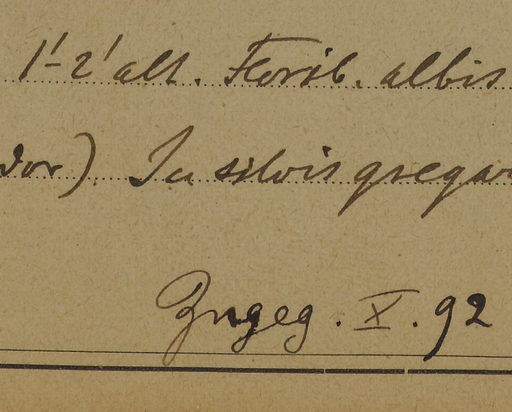 1'-2' alt. Florib. albis
dor). In silvis gregar
Zngeg. X. 92